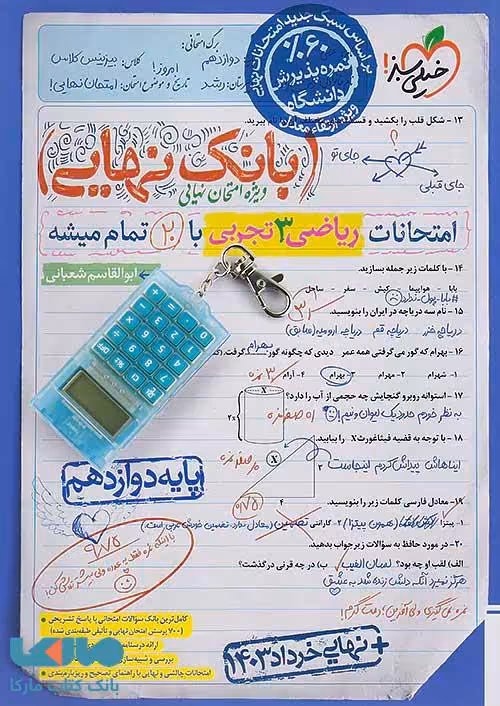 براساس سبک جدید امتحانات نهایی
%۶۰
نمره پذیرش
دانشگاه
ویژه ارتقاء معدل
خیلی سبز!
برگ امتحانی:
دوازدهم
کلاس: بیزنیس کلاس
امروز!
رشد
تاریخ و موضوع امتحان: امتحان نهایی!
۱۳ - شکل قلب را بکشید و
ببرید.
؟
جای تو
جای قبلی
(بانک نهایی)
ویژه امتحان نهایی
امتحانات ریاضی ۳ تجربی با ۲۰ تمام میشه
ابوالقاسم شعبانی
۱۴ - با کلمات زیر جمله بسازید.
بابا - هواپیما - کیش - سفر - ساحل
#بابا-پول-ندارد
۱۵ - نام سه دریاچه در ایران را بنویسید.
دریاچه خزر دریاچه قم دریاچه ارومیه (سابق)
۱۶ - بهرام که گور می گرفتی همه عمر دیدی که چگونه گور بهرام گرفت؟
۱- شهرام ۲- مهرام ۳- بهرام ۴- آرام
۱۷ - استوانه روبرو گنجایش چه حجمی از آب را دارد؟
به نظر خودم حدود یک لیوان و نیم!
2x
۱۸ - با توجه به قضیه فیثاغورث X را بیابید.
ایناهاش پیداش کردم اینجاست
X
۲
۴
پایه دوازدهم
۱۹- معادل فارسی کلمات زیر را بنویسید.
۱- پیتزا
(همون پیتزا)
۲- گارانتی
تضمین
(معادل ندارد، تضمین خودش عربی است)
۲۰- در مورد حافظ به سؤالات زیر جواب بدهید.
الف) لقب او چه بود؟ لسان الغیب ب) در چه قرنی درگذشت؟
هرگز نمیرد آنکه دلش زنده شد به عشق
۹/۷۵
کامل‌ترین بانک سؤالات امتحانی با پاسخ تشریحی
(۷۰۰ پرسش امتحان نهایی و تألیفی طبقه‌بندی شده)
امتحانات چالشی و نهایی با راهنمای تصحیح و ریزبارم‌بندی
+ نهایی خرداد ۱۴۰۳
مارکا
بانک کتاب مارکا